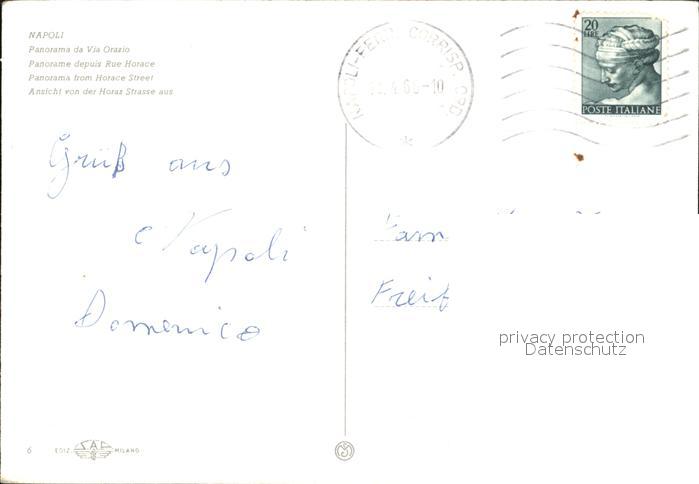 NAPOLI
Panorama da Via Orazio
Panorame depuis Rue Horace
Panorama from Horace Street
Ansicht von der Horaz Strasse aus
NAPOLI-FERR. CORRISP. ORD.
4.6 -10
20
LIRE
POSTE ITALIANE
Grüß aus
Napoli
Domenico
Fam
Freib
privacy protection
Datenschutz
6 EDIZ. SAF MILANO